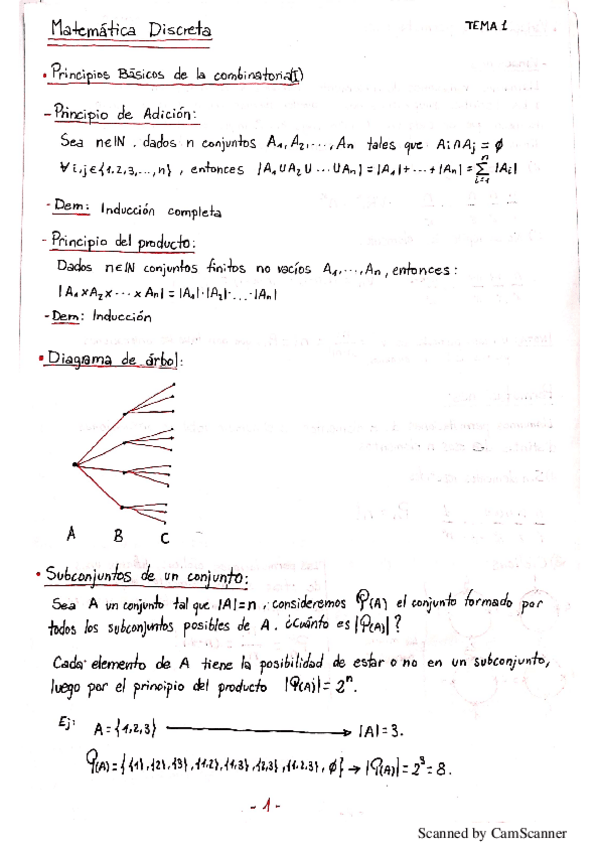 Matemática Discreta
TEMA 1
• Principios Básicos de la combinatoria(I)
- Principio de Adición:
Sea n∈ℕ. dados n conjuntos A₁, A₂, ..., An tales que Ai∩Aj = ∅
∀i,j∈{1,2,3,...,n}, entonces |A₁∪A₂∪...∪An| = |A₁|+...+|An| = ∑ⁿᵢ₌₁ |Ai|
- Dem: Inducción completa
- Principio del producto:
Dados n∈ℕ conjuntos finitos no vacíos A₁,...,An, entonces:
|A₁×A₂×...×An| = |A₁|·|A₂|·...·|An|
- Dem: Inducción
• Diagrama de árbol:
A B C
• Subconjuntos de un conjunto:
Sea A un conjunto tal que |A|=n, consideremos P(A) el conjunto formado por
todos los subconjuntos posibles de A. ¿Cuánto es |P(A)|?
Cada elemento de A tiene la posibilidad de estar o no en un subconjunto,
luego por el principio del producto |P(A)| = 2ⁿ.
Ej: A = {1,2,3} → |A| = 3.
P(A) = {{1},{2},{3},{1,2},{1,3},{2,3},{1,2,3},∅} → |P(A)| = 2³ = 8.
- 1 -
Scanned by CamScanner